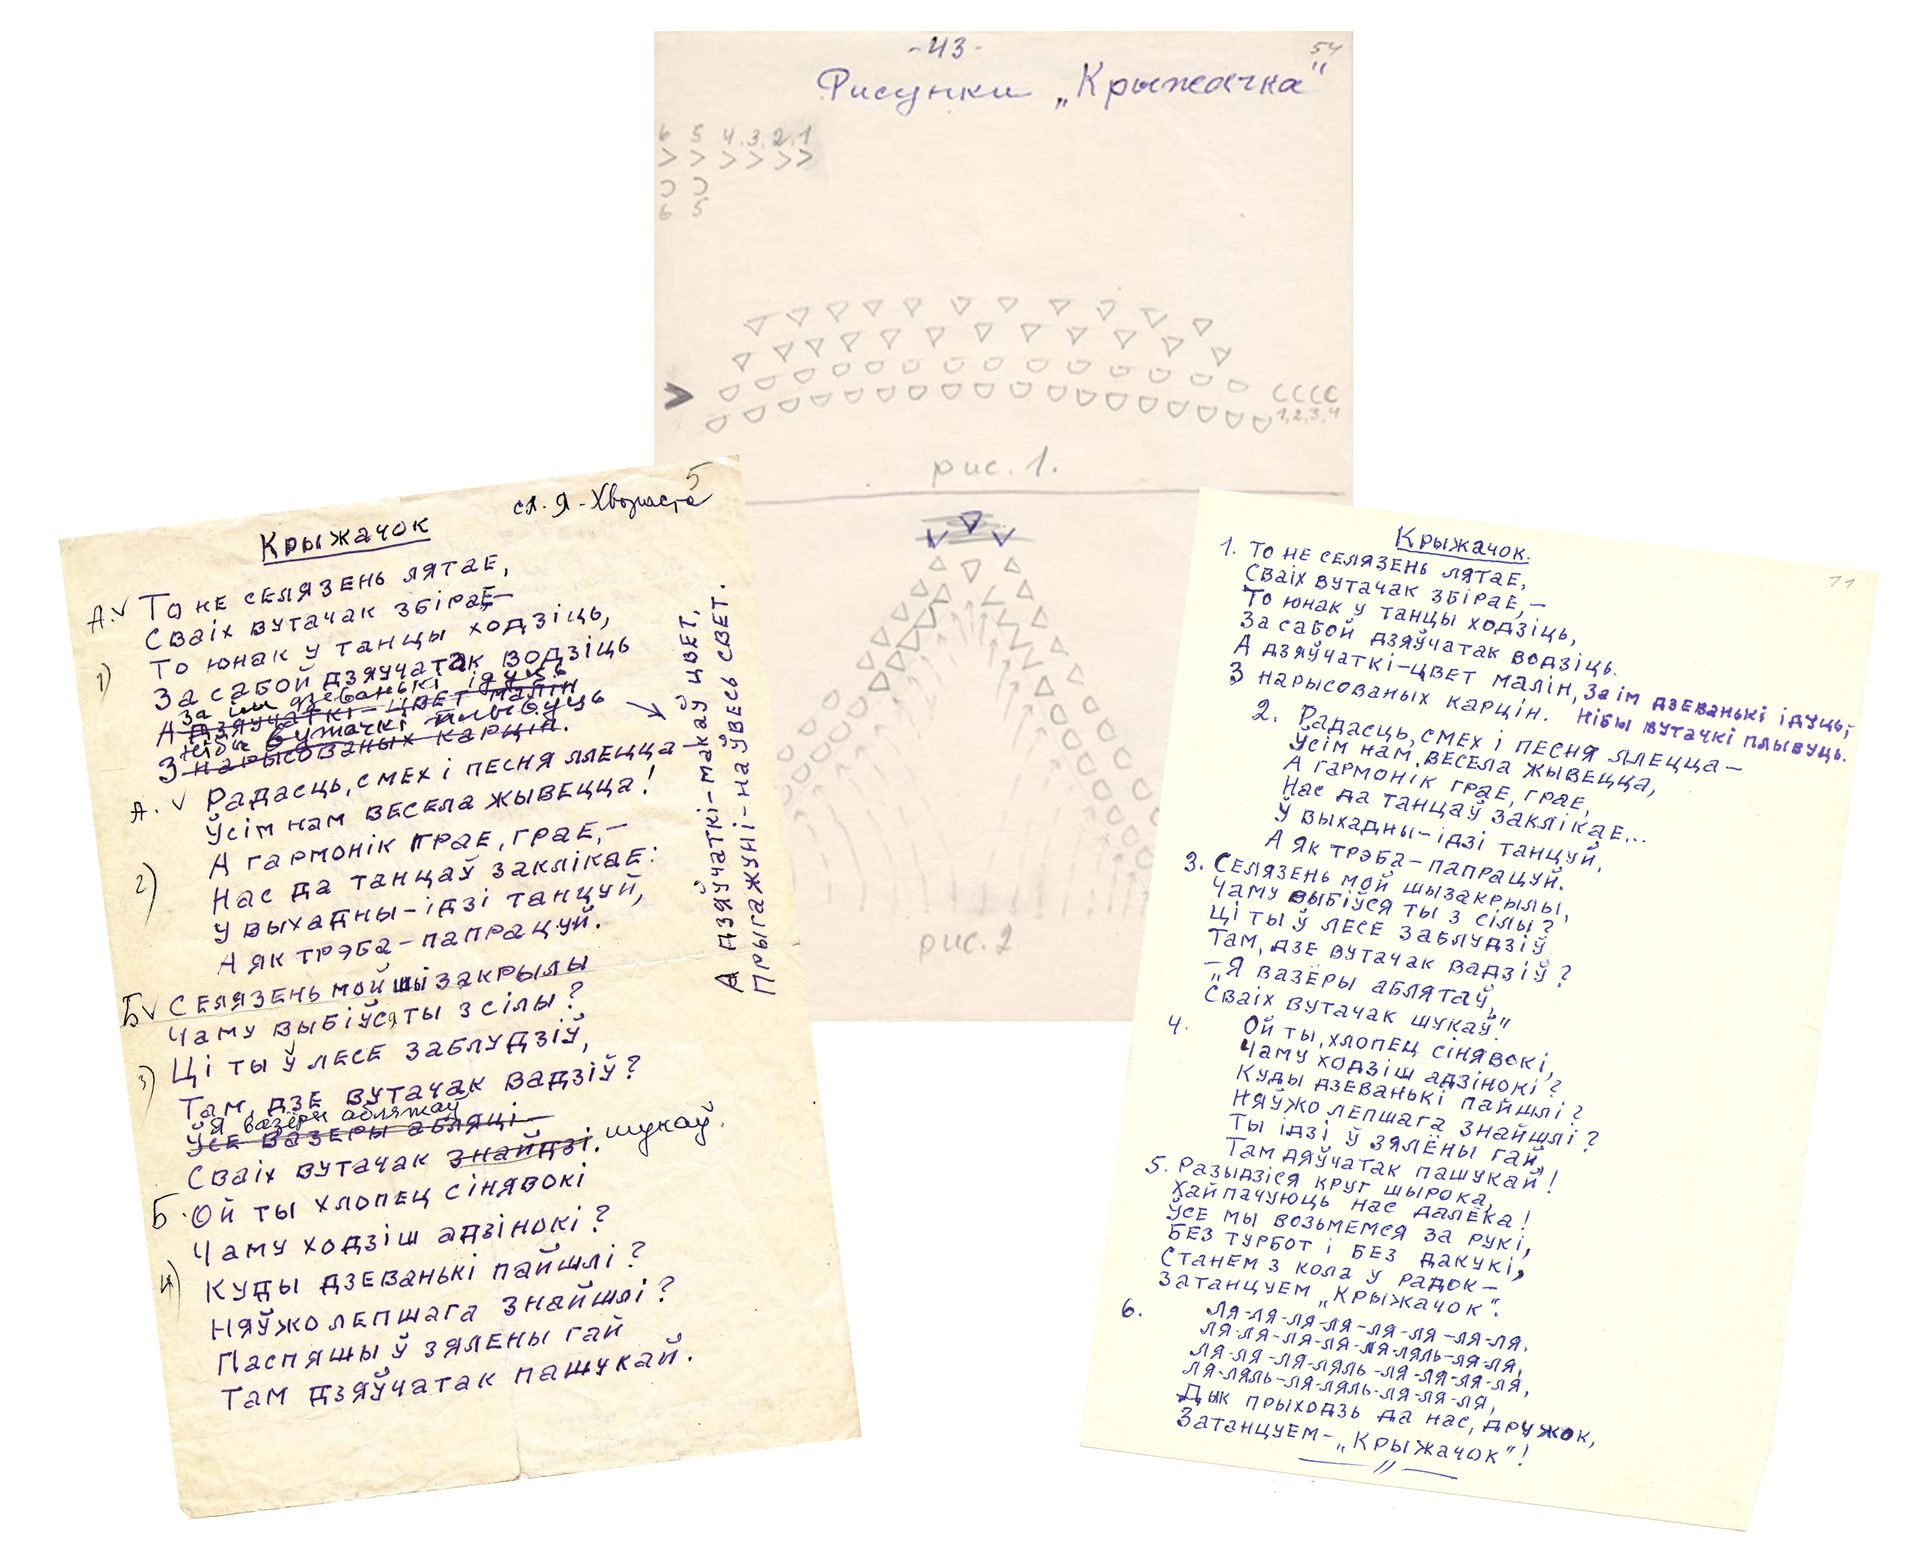 -43-
54
Рисунки „Крыжачка"
6 5 4.3.2.1
6 5
1,2,3,4
рис. 1.
рис. 2
5
сл. Я-Хвораста
Крыжачок
А. То не селязень лятае,
Сваіх вутачак збірае,—
1) То юнак у танцы ходзіць,
За сабой дзяучатак водзіць
За ім дзеванькі ідуць
А дзяучаткі-цвет малін
нібы вутачкі плывуць
З нарысованых карцін.
А. Радасць, смех і песня ллецца—
Ўсім нам весела жывецца!
А гармонік грае, грае,—
2) Нас да танцаў заклікае:
У выхадны-ідзі танцуй,
А як трэба-папрацуй.
Б Селязень мой шызакрылы
Чаму выбіўся ты з сілы?
Ці ты ў лесе заблудзіў,
3) Там, дзе вутачак вадзіў?
Я вазёры аблятаў
Ўсе вазеры абляці—
Сваіх вутачак знайдзі. шукаў.
Б. Ой ты хлопец сінявокі
Чаму ходзіш адзінокі?
4) Куды дзеванькі пайшлі?
Няўжо лепшага знайшлі?
Паспяшы ў зялены гай
Там дзяўчатак пашукай.
А дзяўчаткі-макаў цвет,
Прыгажуні-на ўвесь свет.
11
Крыжачок.
1. То не селязень лятае,
Сваіх вутачак збірае,—
То юнак у танцы ходзіць,
За сабой дзяўчатак водзіць.
А дзяўчаткі-цвет малін, За ім дзеванькі ідуць,-
З нарысованых карцін. Нібы вутачкі плывуць.
2. Радасць, смех і песня ллецца—
Ўсім нам весела жывецца,
А гармонік грае, грае,
Нас да танцаў заклікае...
Ў выхадны-ідзі танцуй,
А як трэба-папрацуй.
3. Селязень мой шызакрылы,
Чаму выбіўся ты з сілы?
Ці ты ў лесе заблудзіў
Там, дзе вутачак вадзіў?
—„Я вазёры аблятаў,
Сваіх вутачак шукаў."
4. Ой ты, хлопец сінявокі,
Чаму ходзіш адзінокі?
Куды дзеванькі пайшлі?
Няўжо лепшага знайшлі?
Ты ідзі ў зялёны гай,
Там дяўчатак пашукай!
5. Разыдзіся круг шырока,
Хай пачуюць нас далёка!
Ўсе мы возьмемся за рукі,
Без турбот і без дакукі,
Станем з кола у радок—
Затанцуем „Крыжачок".
6. Ля-ля-ля-ля-ля-ля-ля-ля.
Ля-ля-ля-ля-ля-ляль-ля-ля,
Ля-ля-ля-ляль-ля-ля-ля-ля,
Ля-ляль-ля-ляль-ля-ля-ля,
Дык прыходзь да нас, дружок,
Затанцуем-„Крыжачок"!